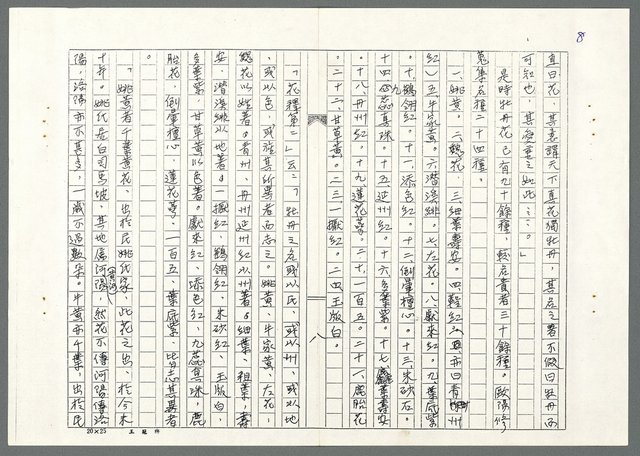 8
直曰花,其意謂天下真花獨牡丹,其名之著不假曰牡丹而
可知也,其愛重之如此之…。」
是時牡丹花已有九十餘種,較名貴者三十餘種。歐陽修
蒐集名種二十四種。
一、姚黃。二、魏花。三、細葉壽安。四、鞓紅(亦曰青州
紅)五、牛家黃。六、潛溪緋。七、左花。八、獻來紅。九、葉底紫
。十、鶴翎紅。十一、添色紅。十二、倒暈檀心。十三、朱砂紅。
十四、九蕊真珠。十五、延州紅。十六、多葉紫。十七、麤葉壽安
。十八、丹州紅。十九、蓮花萼。二十、一百五。二十一、鹿胎花
。二十二、甘草黃。二十三、一擫紅。二十四、玉版白。
「花釋第二」云:「牡丹之名或以氏、或以州、或以地
、或以色、或旌其所異者而志之。姚黃、牛家黃、左花、
魏花以姓著。青州、丹州、延州紅以州著。細葉、粗葉、壽
安、潛溪緋以地著。一擫紅、鶴翎紅、朱砂紅、玉版白、
多葉紫、甘草黃以色著。獻來紅、添色紅、九蕊真珠、鹿
胎花、倒暈檀心、蓮花萼、一百五、葉底紫,皆志其異者
。
「姚黃者千葉黃花,出於民姚氏家,此花之出,於今未
十年。姚氏居白司馬坡,其地屬河陽,然花不傳河陽傳洛
陽,洛陽亦不甚多,一歲不過數朵。牛黃亦千葉,出於民
20×25